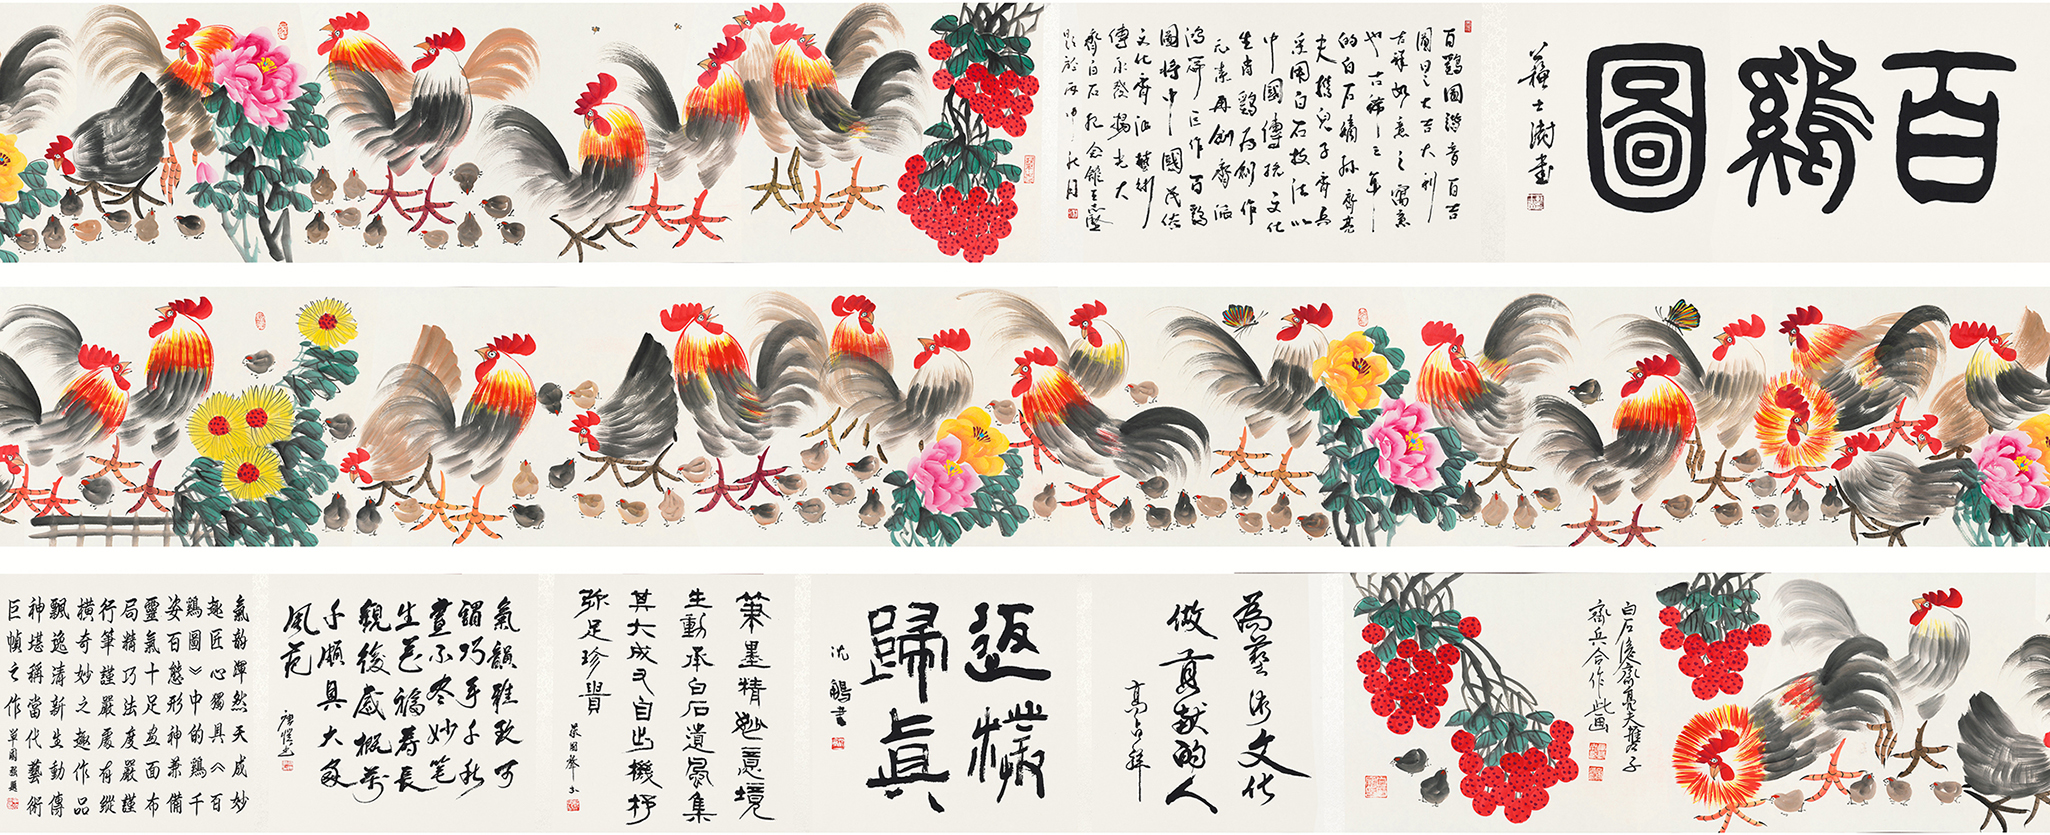 百鷄圖
蘇士澍書
百鷄圖諧音百吉
圖曰之大吉大利
吉祥如意之寓意
也古稀之年
的白石嫡孫齊亮
夫携兒子齊兵
采用白石技法以
中國傳統文化
生肖鷄为創作
元素再創齊派
鸿篇巨作百鷄
圖将中國民俗
文化齊派藝術
傳承發揚光大
齊白石紀念館王志堅
题於丙申秋月
白石後齊亮夫携子
齊兵合作此画
為藝術文化
做貢献的人
高占祥
返樸
歸真
沈鵬書
筆墨精妙意境
生動承白石遺風集
其大成又自出機杼
弥足珍貴
氣韻雅致可
謂巧手千秋
畫不尽妙笔
生花福壽長
觀後感概萬
千頗具大家
風范
氣韵渾然天成妙
趣匠心獨具《百
鷄圖》中的鷄千
姿百態形神兼備
靈氣十足画面布
局精巧法度嚴謹
行筆謹嚴處有縱
横奇妙之趣作品
飄逸清新生動傳
神堪稱當代藝術
巨幀之作 單國强題